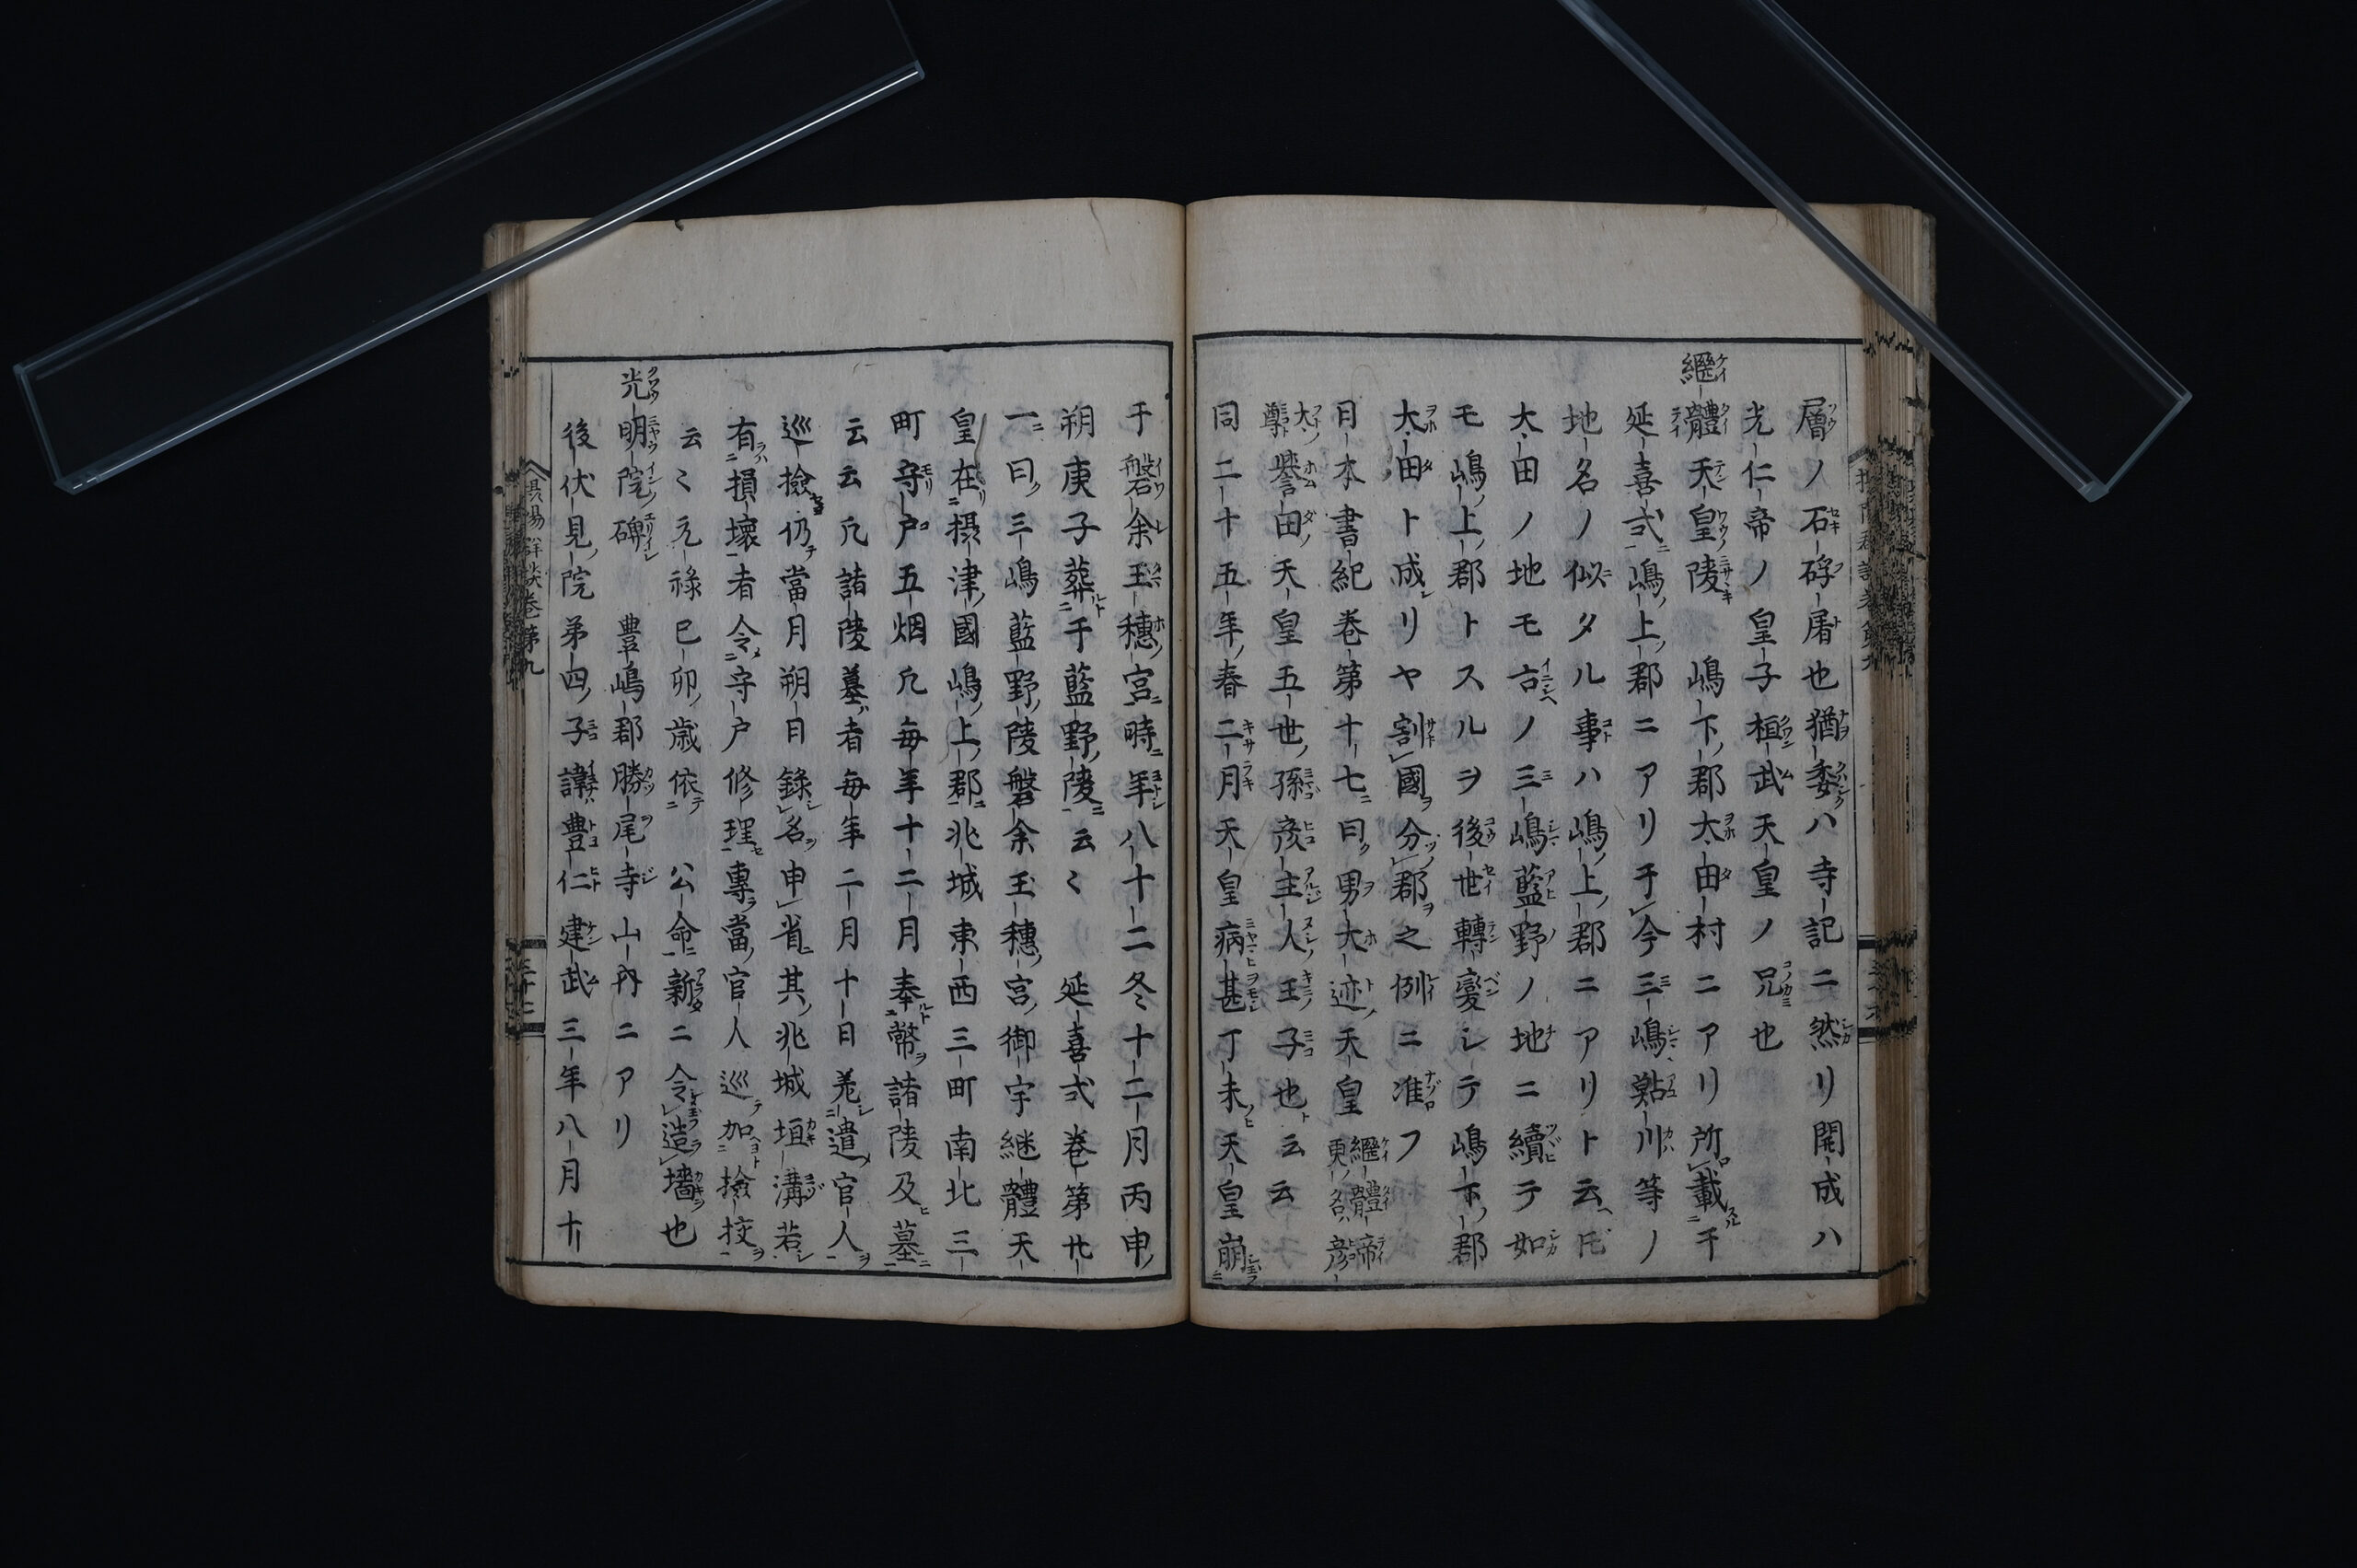 層ノ石碑屠也猶委ハ寺記ニ然リ開成ハ
光仁帝ノ皇子桓武天皇ノ兄也
繼體天皇陵 嶋下郡太田村ニアリ所載于
延喜式嶋上郡ニアリ于今三嶋鮎川等ノ
地名ノ似タル事ハ嶋上郡ニアリト云ヘ𪜈
大田ノ地モ古ノ三嶋藍野ノ地ニ續テ如
モ嶋上郡トスルヲ後世轉變シテ嶋下郡
大田ト成リヤ割國分郡之例ニ准フ
日本書紀巻第十七曰男大迹天皇 繼體帝更名彦
太尊譽田天皇五世孫彦主人王子也云云
同二十五年春二月天皇病甚丁未天皇崩
于磐余玉穗宮時年八十二冬十二月丙申
朔庚子葬于藍野陵云〻 延喜式巻第廿
一曰三嶋藍野陵磐余玉穗宮御宇継體天
皇在摂津國嶋上郡兆城東西三町南北三
町守戸五烟凡毎年十二月奉幣諸陵及墓
云云凡諸陵墓者毎年二月十日差遣官人
巡撿仍當月朔日錄名申省其兆城垣溝若
有損壊者令守戸修理專當官人巡加撿挍
云〻元祿己卯歳依 公命新ニ令造墻也
光明院碑 豊嶋郡勝尾寺山内ニアリ
後伏見院第四子諱豊仁建武三年八月十
摂陽群談巻第九